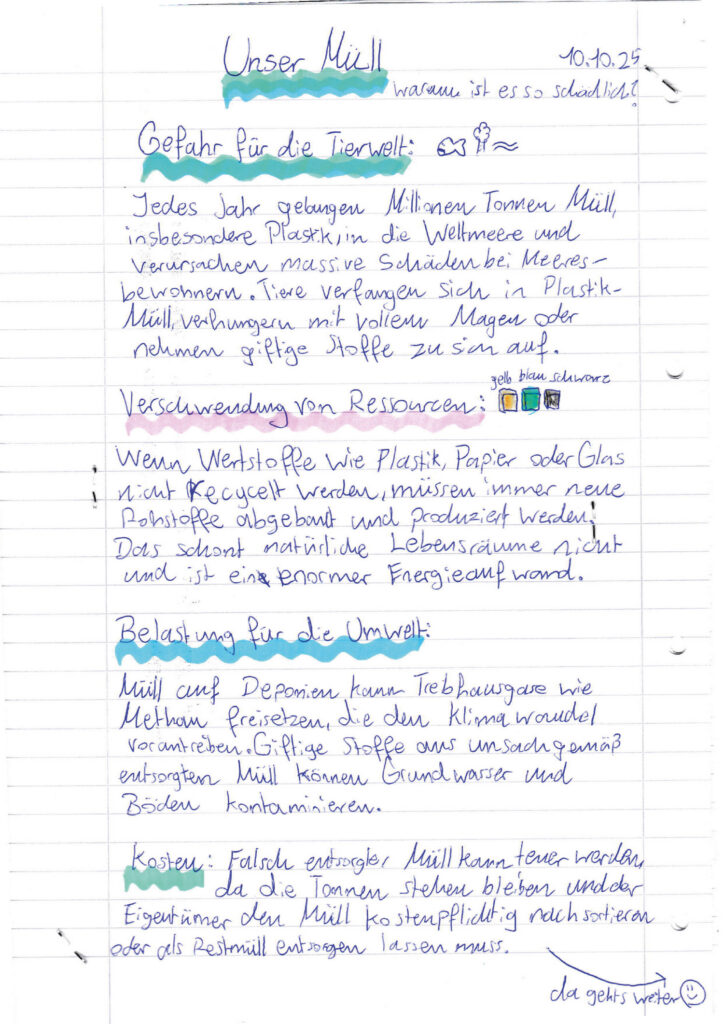 Unser Müll
10.10.25
warum ist es so schädlich?
Gefahr für die Tierwelt:
Jedes Jahr gelangen Millionen Tonnen Müll,
insbesondere Plastik, in die Weltmeere und
verursachen massive Schäden bei Meeres-
bewohnern. Tiere verfangen sich in Plastik-
Müll, verhungern mit vollem Magen oder
nehmen giftige Stoffe zu sich auf.
gelb blau schwarz
Verschwendung von Ressourcen:
Wenn Wertstoffe wie Plastik, Papier oder Glas
nicht Recycelt werden, müssen immer neue
Rohstoffe abgebaut und produziert werden.
Das schont natürliche Lebensräume nicht
und ist ein enormer Energieaufwand.
Belastung für die Umwelt:
Müll auf Deponien kann Trebhausgase wie
Methan freisetzen, die den Klimawandel
vorantreiben. Giftige Stoffe aus unsachgemäß
entsorgten Müll können Grundwasser und
Böden kontaminieren.
Kosten: Falsch entsorgter Müll kann teuer werden,
da die Tonnen stehen bleiben und der
Eigentümer den Müll kostenpflichtig nachsortieren
oder als Restmüll entsorgen lassen muss.
da gehts weiter